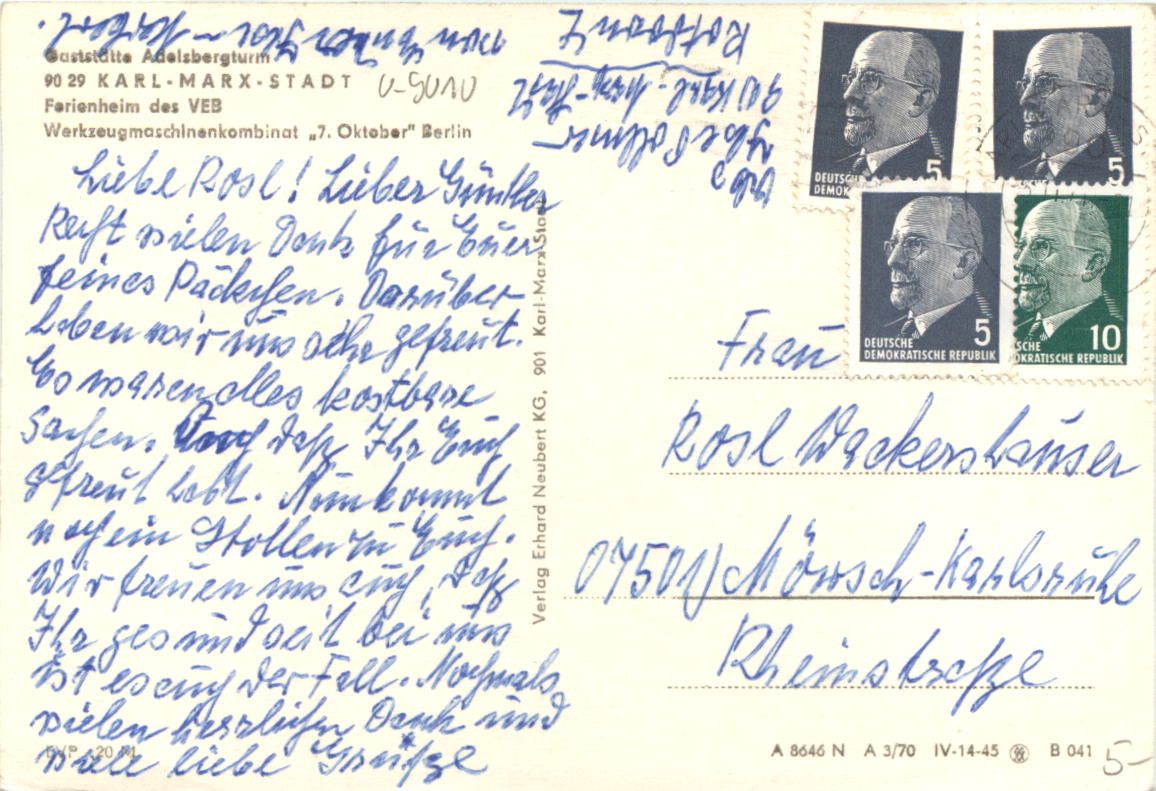 Gaststätte Adelsbergturm
9029 KARL-MARX-STADT
Ferienheim des VEB
Werkzeugmaschinenkombinat „7. Oktober" Berlin
U-5010
Liebe Rosl! Lieber Günther
Recht vielen Dank für Euer
feines Päckchen. Darüber
haben wir uns sehr gefreut.
Es waren alles kostbare
Sachen. Auch daß Ihr Euch
gefreut habt. Nun kommt
noch ein Stollen zu Euch.
Wir freuen uns auch, daß
Ihr gesund seit bei uns
ist es auch der Fall. Nochmals
vielen herzlichen Dank und
viele liebe Grüße
von Eurer
Abs.
901 Karl-Marx-Stadt
Verlag Erhard Neubert KG, 901 Karl-Marx-Stadt
DEUTSCH
DEMOK
5
5
DEUTSCHE
DEMOKRATISCHE REPUBLIK
5
SCHE
OKRATISCHE REPUBLIK
10
Frau
Rosl Wackershauser
07501) Mörsch-Karlsruhe
Rheinstraße
EVP -,20 M
A 8646 N A 3/70 IV-14-45 B 041
5-